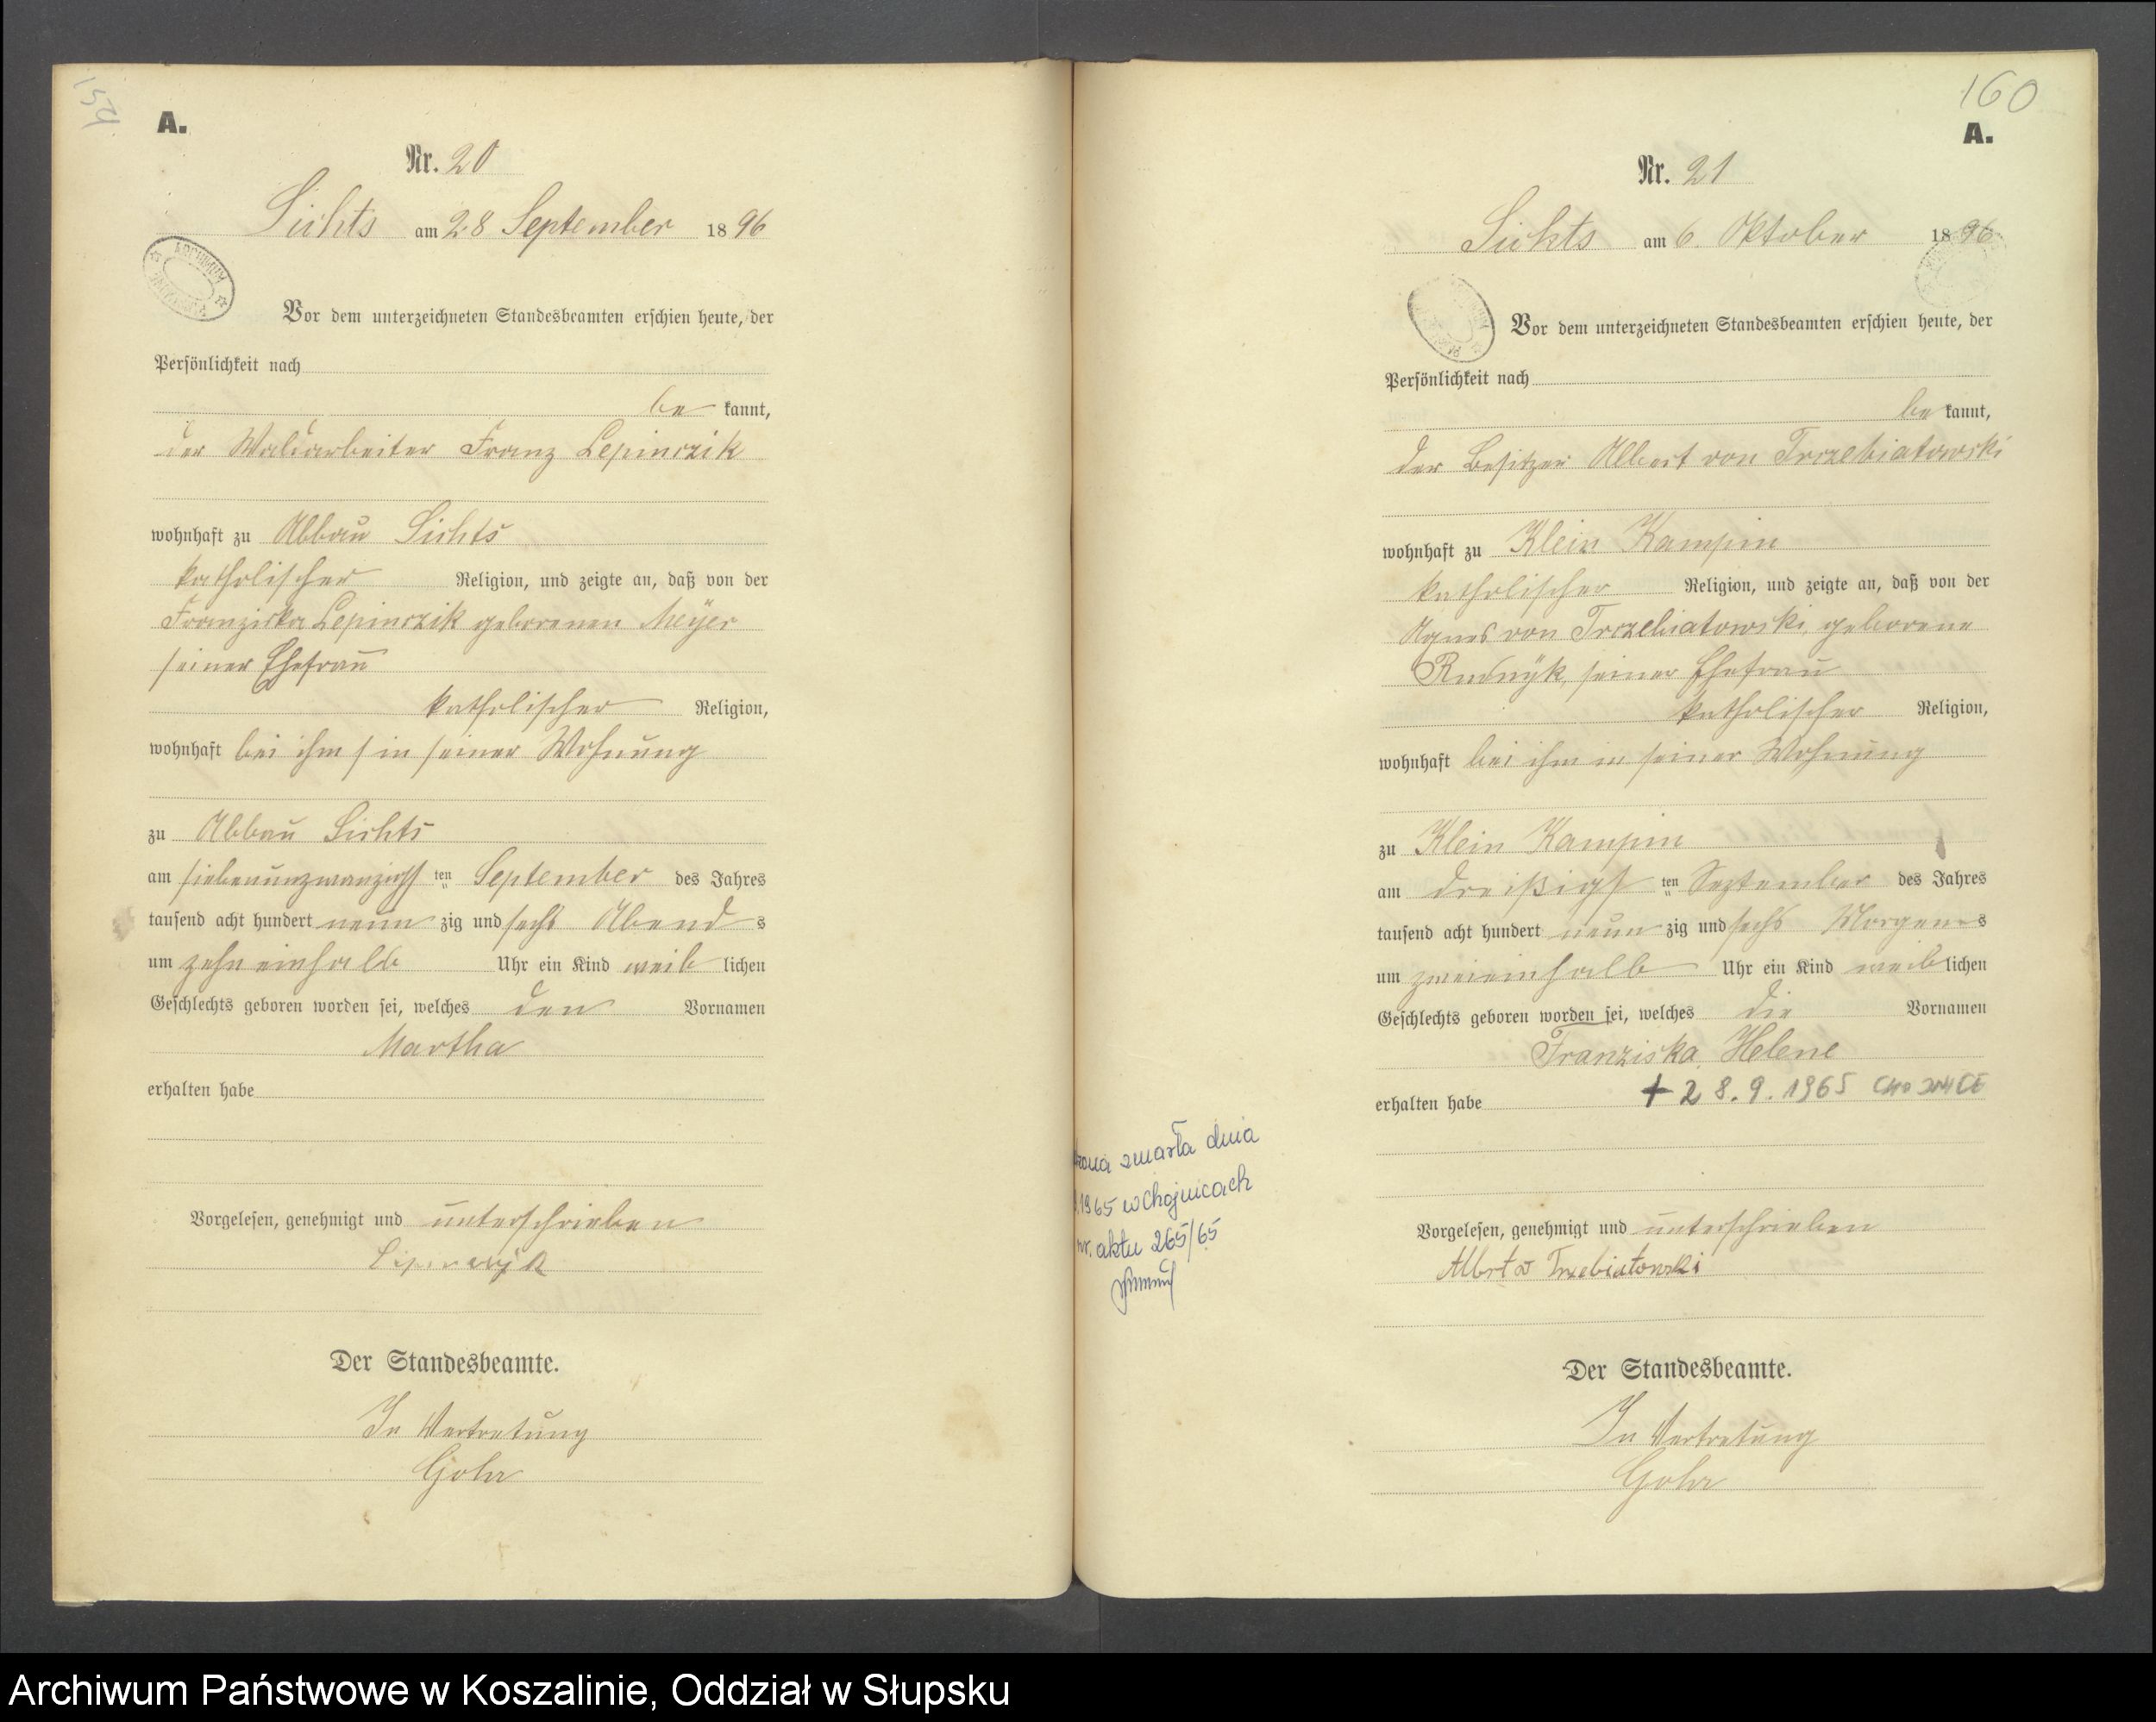 159
A.
Nr. 20
Sichts am 28 September 1896
Vor dem unterzeichneten Standesbeamten erschien heute, der
Persönlichkeit nach
be kannt,
der Waldarbeiter Franz Lepinczik
wohnhaft zu Abbau Sichts
katholischer Religion, und zeigte an, daß von der
Franziska Lepinczik geborenen Meyer
seiner Ehefrau
katholischer Religion,
wohnhaft bei ihm in seiner Wohnung
zu Abbau Sichts
am siebenunzwanzigsten September des Jahres
tausend acht hundert neun zig und sechs Abend s
um zehn einhalb Uhr ein Kind weib lichen
Geschlechts geboren worden sei, welches den Vornamen
Martha
erhalten habe
Vorgelesen, genehmigt und unterschrieben
Der Standesbeamte.
In Vertretung
Gohr
160
A.
Nr. 21
Sichts am 6. Oktober 1896
Vor dem unterzeichneten Standesbeamten erschien heute, der
Persönlichkeit nach
be kannt,
der Besitzer Albert von Trczebiatowski
wohnhaft zu Klein Kampin
katholischer Religion, und zeigte an, daß von der
Agnes von Trczebiatowski, geborene
Rudnÿk, seiner Ehefrau
katholischer Religion,
wohnhaft bei ihm in seiner Wohnung
zu Klein Kampin
am dreißigsten September des Jahres
tausend acht hundert neun zig und sechs Morgens
um zweieinhalb Uhr ein Kind weiblichen
Geschlechts geboren worden sei, welches die Vornamen
Franziska, Helene
erhalten habe + 28.9.1965
zmarła dnia
1965 w Chojnicach
nr. aktu 265/65
Vorgelesen, genehmigt und unterschrieben
Albrt v Trzebiatowski
Der Standesbeamte.
In Vertretung
Gohr
Archiwum Państwowe w Koszalinie, Oddział w Słupsku